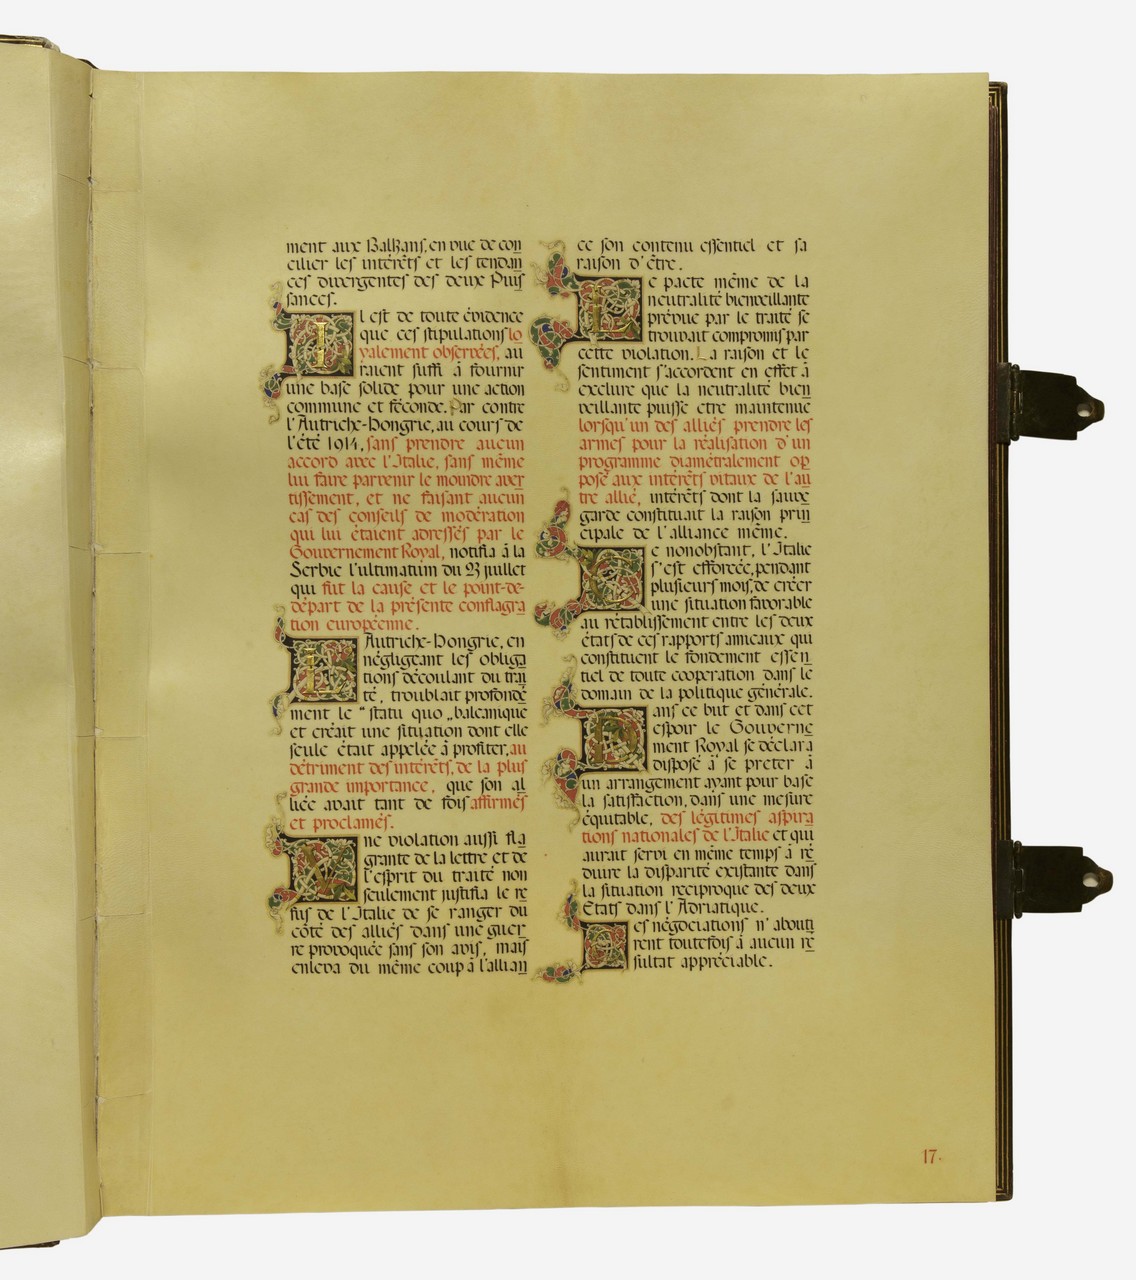 ment aux Balkans, en vue de con
cilier les intérêts et les tendan
ces divergentes des deux Puis
sances.
Il est de toute évidence
que ces stipulations lo
yalement observées, au
raient suffi à fournir
une base solide pour une action
commune et féconde. Par contre
l'Autriche-Hongrie, au cours de
l'été 1914, sans prendre aucun
accord avec l'Italie, sans même
lui faire parvenir le moindre aver
tissement, et ne faisant aucun
cas des conseils de modération
qui lui étaient adressés par le
Gouvernement Royal, notifia à la
Serbie l'ultimatum du 23 juillet
qui fut la cause et le point-de-
départ de la présente conflagra
tion européenne.
L'Autriche-Hongrie, en
négligeant les obliga
tions découlant du trai
té, troublait profondé
ment le "statu quo„ balcanique
et créait une situation dont elle
seule était appelée à profiter, au
détriment des intérêts, de la plus
grande importance, que son al
liée avait tant de fois affirmés
et proclamés.
Une violation aussi fla
grante de la lettre et de
l'esprit du traité non
seulement justifia le re
fus de l'Italie de se ranger du
côté des alliés dans une guer
re provoquée sans son avis, mais
enleva du même coup à l'allian
ce son contenu essentiel et sa
raison d'être.
Le pacte même de la
neutralité bienveillante
prévue par le traité se
trouvait compromis par
cette violation. La raison et le
sentiment s'accordent en effet à
exclure que la neutralité bien
veillante puisse etre maintenue
lorsqu'un des alliés prendre les
armes pour la réalisation d'un
programme diamétralement op
posé aux intérêts vitaux de l'au
tre allié, intérêts dont la sauve
garde constituait la raison prin
cipale de l'alliance même.
Ce nonobstant, l'Italie
s'est efforcée, pendant
plusieurs mois, de créer
une situation favorable
au rétablissement entre les deux
états de ces rapports amicaux qui
constituent le fondement essen
tiel de toute cooperation dans le
domain de la politique générale.
Dans ce but et dans cet
espoir le Gouverne
ment Royal se déclara
disposé à se preter à
un arrangement ayant pour base
la satisfaction, dans une mesure
équitable, des légitimes aspira
tions nationales de l'Italie et qui
aurait servi en même temps à ré
duire la disparité existante dans
la situation reciproque des deux
États dans l'Adriatique.
Ces négociations n'abouti
rent toutefois à aucun ré
sultat appréciable.
17.